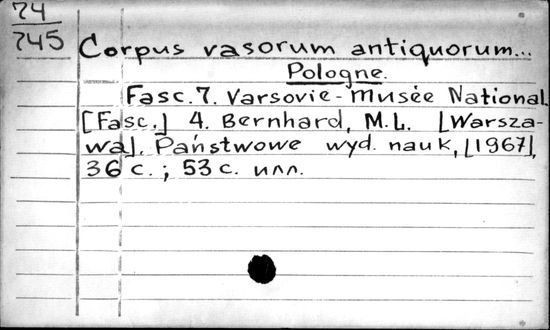 74
745
Corpus vasorum antiquorum...
Pologne.
Fasc. 7. Varsovie - Musée National.
[Fasc.] 4. Bernhard, M.L. [Warsza-
wa]. Państwowe wyd. nauk, [1967],
36 с. ; 53 с. илл.